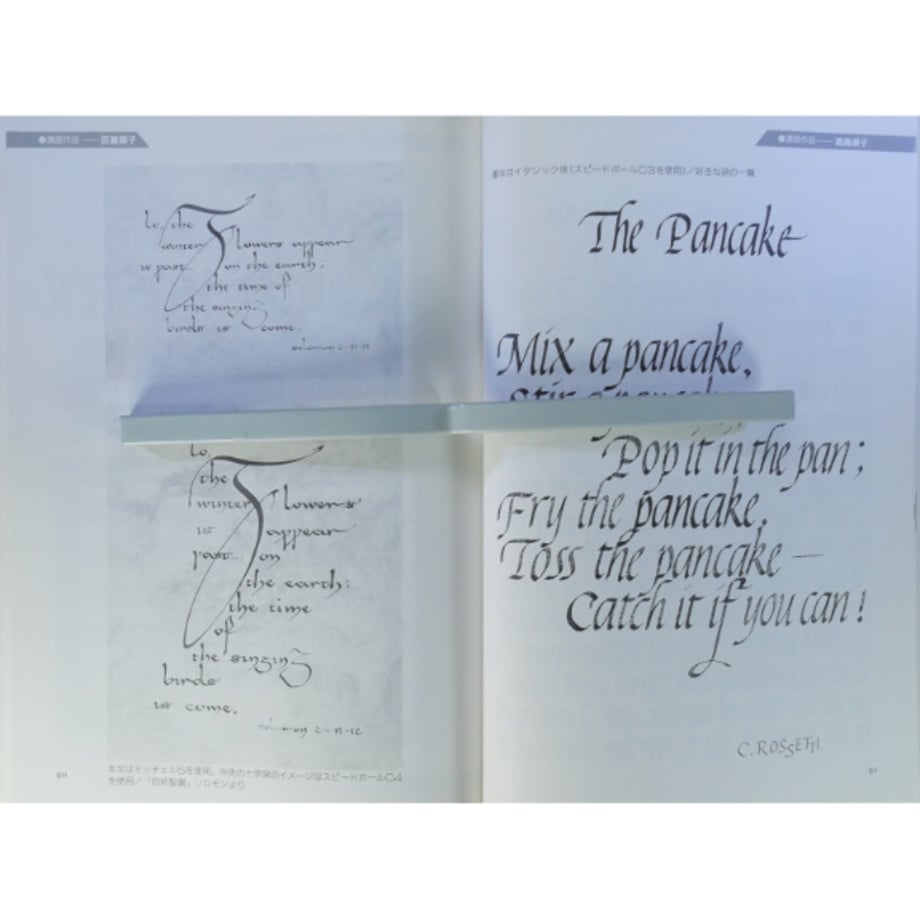 ●講師作品
lo, the
winter Flowers appear
is past... on the earth;
the time of
the singing
birds is come.
solomon 2-11-12
lo,
the
winter Flowers
is appear
past... on
the earth;
the time
of
the singing
birds
is come.
solomon 2-11-12
本文はミッチェル5を使用。中央の十字架のイメージはスピードボールC4
を使用/「旧約聖書」ソロモンより
90
●講師作品
書体はイタリック体(スピードボールC3を使用)/好きな詩の一篇
The Pancake
Mix a pancake,
Stir a
Pop it in the pan;
Fry the pancake,
Toss the pancake—
Catch it if you can!
C. ROSSETTI.
91